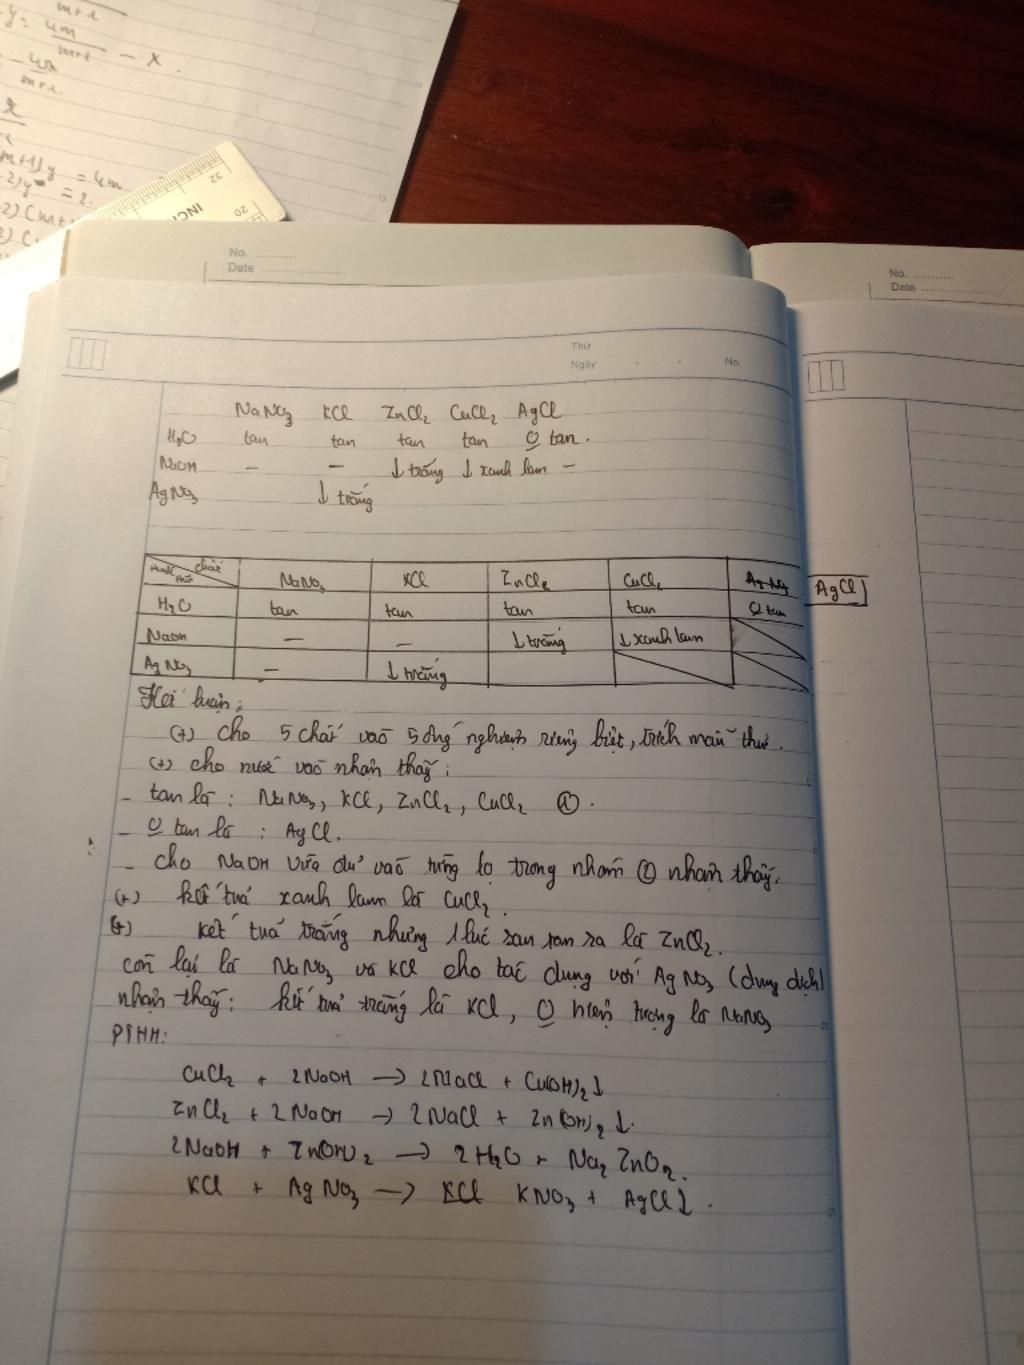 m+1
y = 4m
m+1 - x.
32
20
INC
No. ............
Date ........................
No. ............
Date ........................
Thứ
Ngày . . No.
NaNO3 KCl ZnCl2 CuCl2 AgCl
H2O tan tan tan tan O tan.
NaOH — — ↓ trắng ↓ xanh lam —
AgNO3 ↓ trắng
chất
NaNO3 KCl ZnCl2 CuCl2 AgCl
H2O tan tan tan tan O tan
NaOH — — ↓ trắng ↓ xanh lam
AgNO3 — ↓ trắng
Kết luận:
(+) cho 5 chất vào 5 ống nghiệm riêng biệt, trích mẫu thử.
(+) cho nước vào nhận thấy:
- tan là: NaNO3, KCl, ZnCl2, CuCl2 ①.
- O tan là : AgCl.
- cho NaOH vừa dư vào từng lọ trong nhóm ① nhận thấy:
(+) kết tuả xanh lam là CuCl2.
(+) kết tuả trắng nhưng 1 lúc sau tan ra là ZnCl2.
còn lại là NaNO3 và KCl cho tác dụng với AgNO3 (dung dịch)
nhận thấy: kết tuả trắng là KCl, O hiện tượng là NaNO3
PTHH:
CuCl2 + 2NaOH → 2NaCl + Cu(OH)2↓
ZnCl2 + 2NaOH → 2NaCl + Zn(OH)2↓.
2NaOH + Zn(OH)2 → 2H2O + Na2ZnO2.
KCl + AgNO3 → KCl KNO3 + AgCl↓.